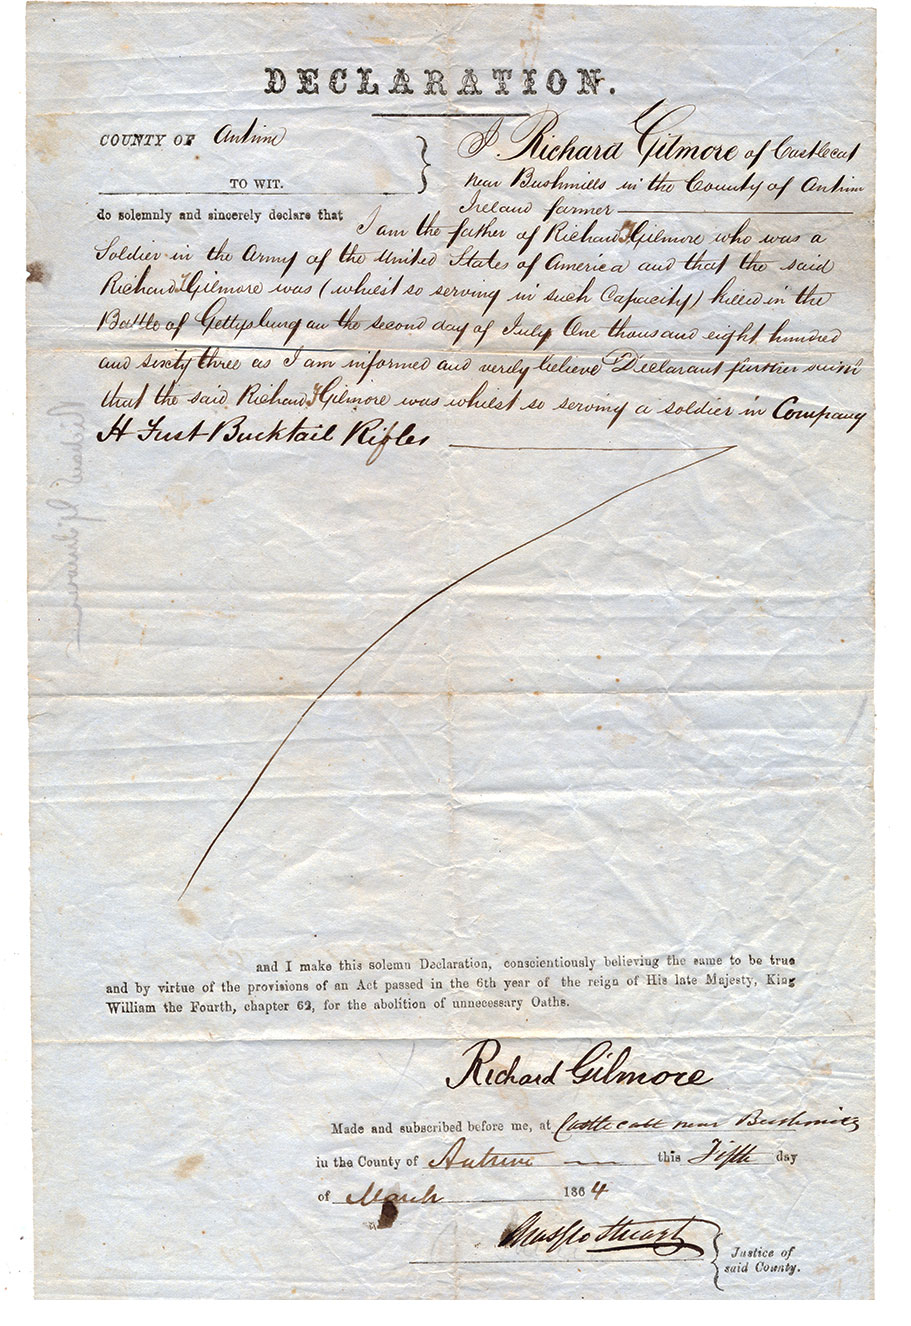 DECLARATION.
COUNTY OF Antrim
TO WIT.
I Richard Gilmore of Castlecat
near Bushmills in the County of Antrim
Ireland farmer
do solemnly and sincerely declare that
I am the father of Richard J Gilmore who was a
Soldier in the Army of the United States of America and that the said
Richard J Gilmore was (whilst so serving in such Capacity) killed in the
Battle of Gettysburg on the second day of July One thousand eight hundred
and sixty three as I am informed and verily believe Declarant further saith
that the said Richard J Gilmore was whilst so serving a soldier in Company
H First Bucktail Rifles
and I make this solemn Declaration, conscientiously believing the same to be true
and by virtue of the provisions of an Act passed in the 6th year of the reign of His late Majesty, King
William the Fourth, chapter 62, for the abolition of unnecessary Oaths.
Richard Gilmore
Made and subscribed before me, at Castlecatt near Bushmills
in the County of Antrim this Fifth day
of March 1864
Stuart
Justice of
said County.